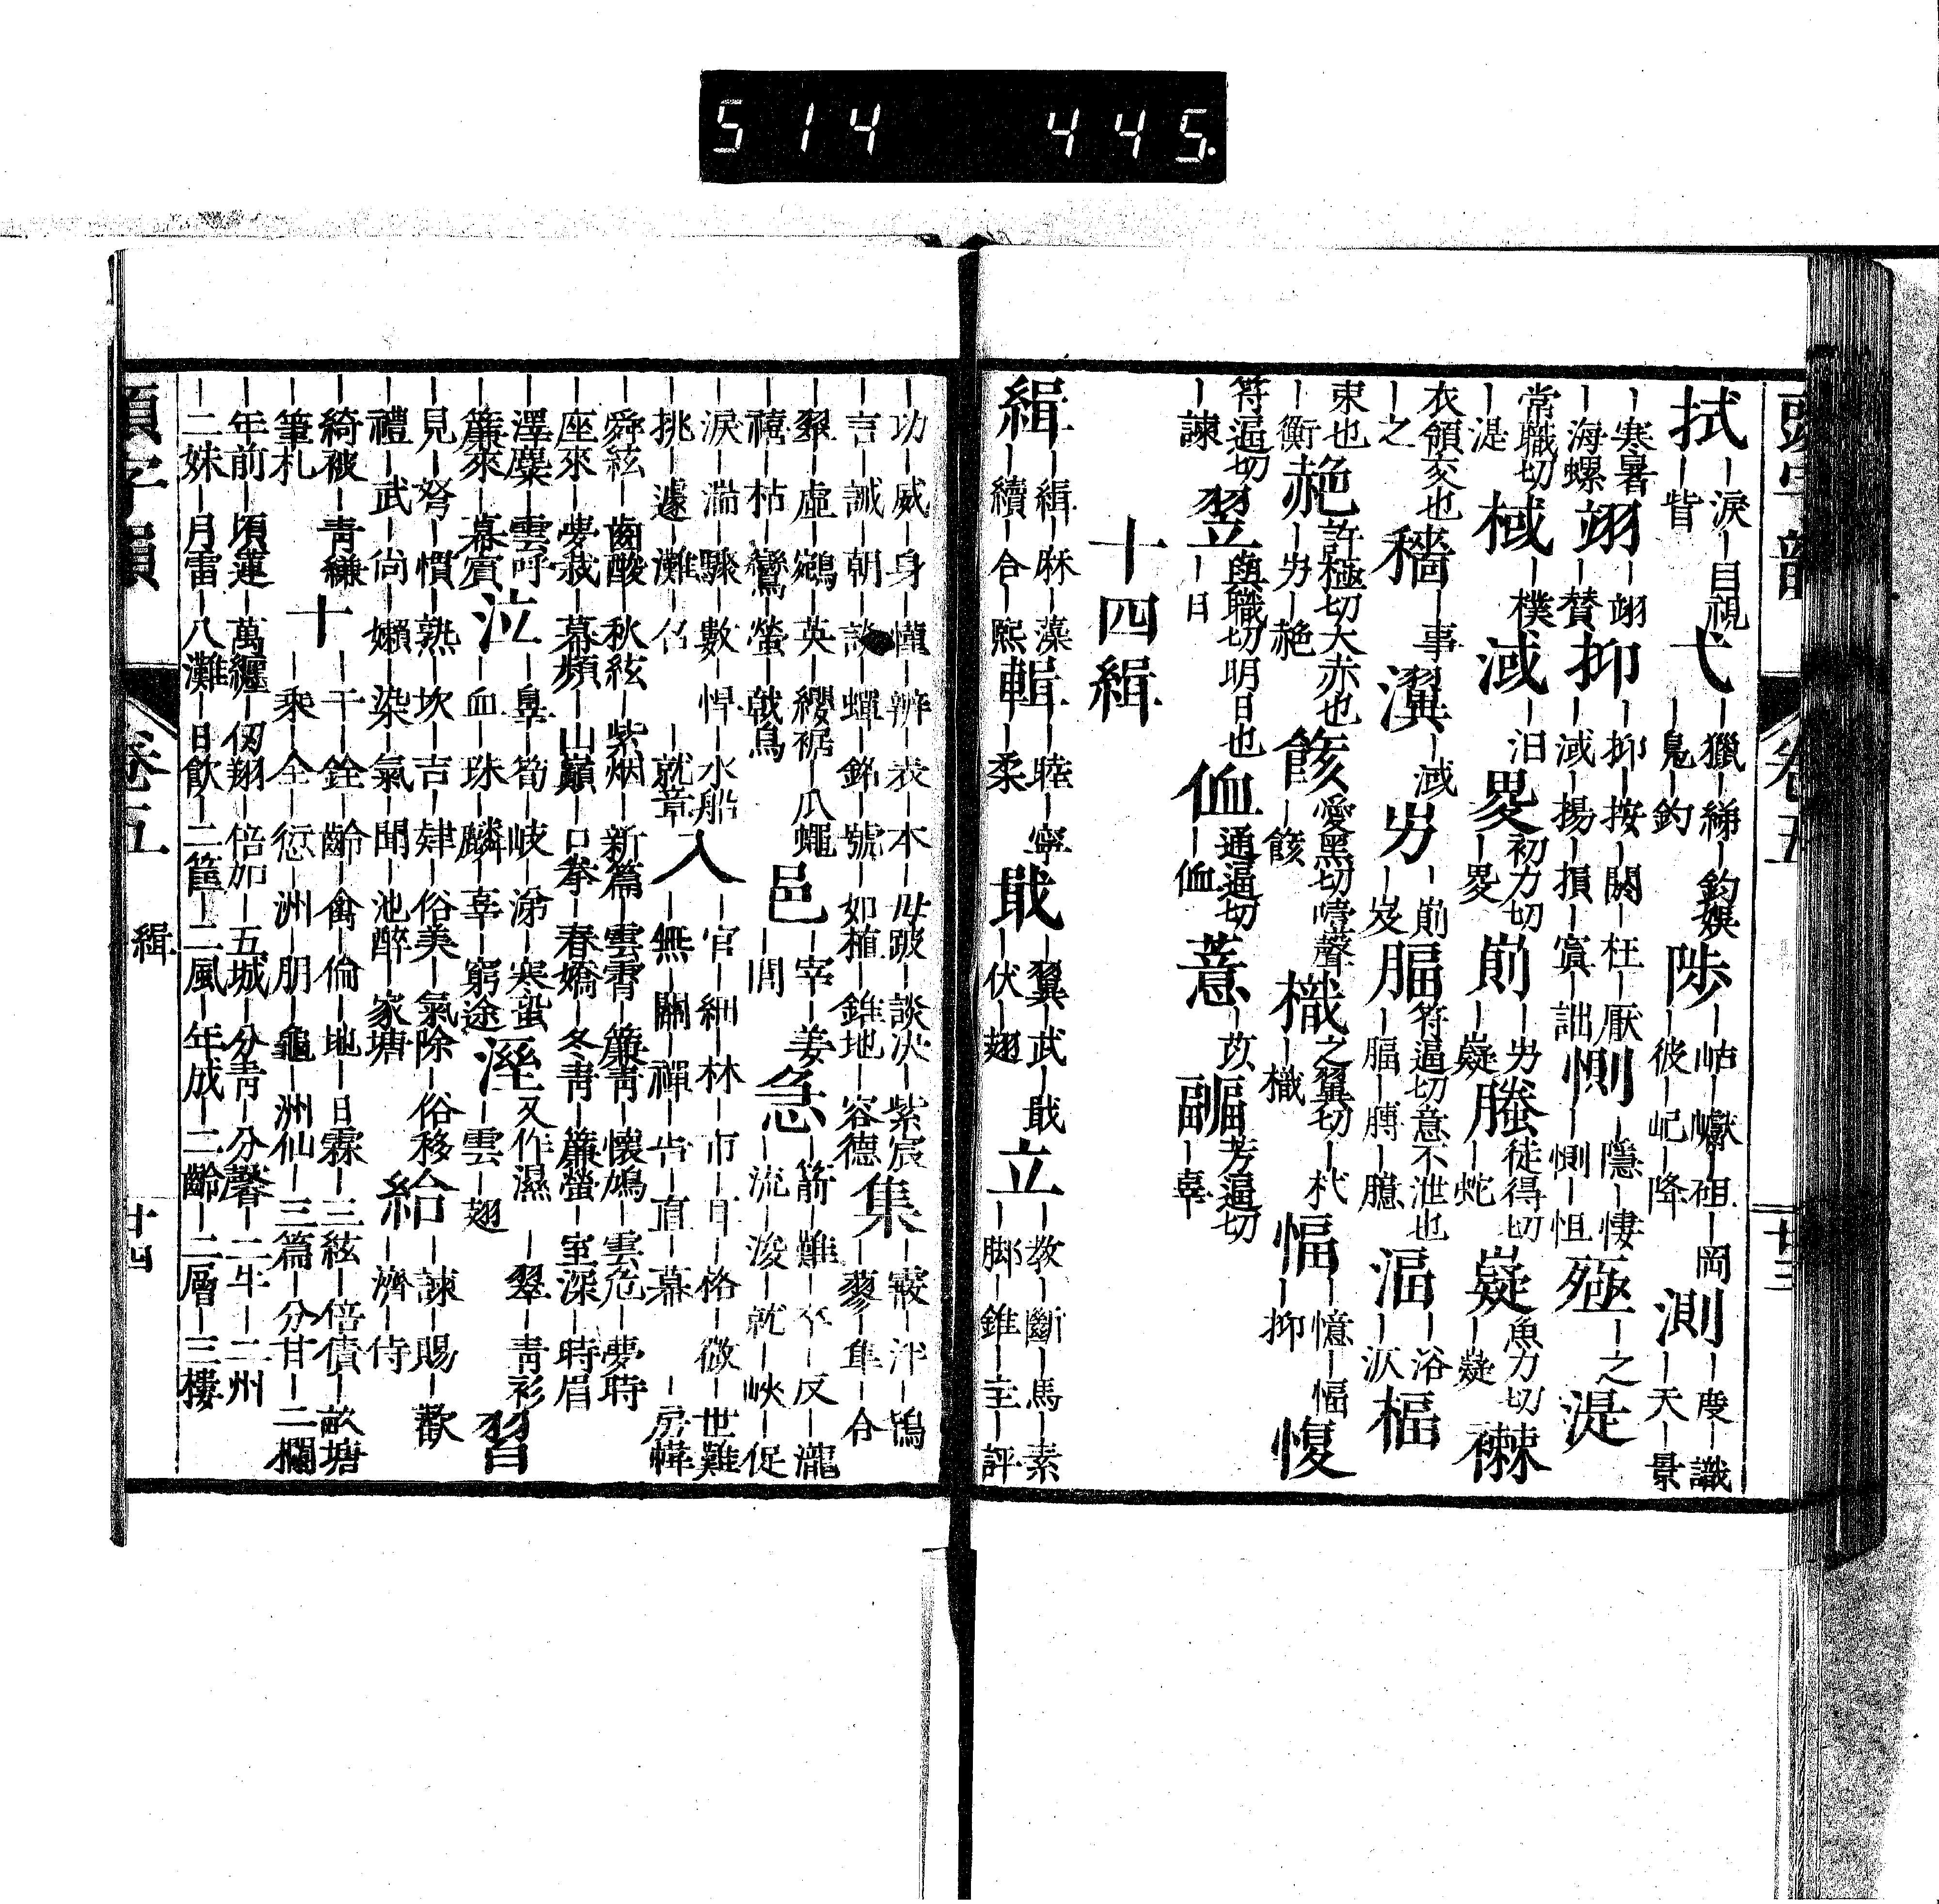 5 1 4 4 4 5.
頭字韻 卷五 廿三
拭 ―淚―目視―眥 弋 ―獵―綈―鈎娛―鳧―釣 陟 ―岵―巘―砠―岡―彼―屺―降 測 ―度―識―天―景
―寒暑―海螺 翊 ―翊―贊 抑 ―抑―按―閼―枉―厭―減―揚―損―寘―詘 惻 ―隱―悽―惻―怛 殛 ―之 湜
常職切―湜 棫 ―樸 淢 ―汩 畟 初力切―畟 崱 ―屴―嶷 螣 徒得切―蛇 嶷 魚力切―嶷 襋
衣領交也―之 穡 ―事 瀷 ―淢 屴 ―崱―岌 腷 符逼切意不泄也―腷―膊―臆 湢 ―浴―汃 楅
東也―衡 赩 許極切大赤也―屴―赩 餩 愛黑切噎聲―餩 樴 之翼切―杙―樴 愊 ―憶―愊―抑 愎
符逼切―諫 翌 與職切明日也―日 侐 通逼切―侐 薏 ―苡 副 芳逼切―辜
十四緝
緝 ―緝―麻―藻―續―合―熙 輯 ―睦―寧―柔 戢 ―翼―武―戢―伏―翅 立 ―教―斷―馬―素―脚―錐―主―評
―功―威―身―懂―辨―表―本―毋跛―談決―紫宸―言―誡―朝―談―蟬―銘―號―如植―錐地―容德 集 ―霰―泮―鴇―蓼―隼―合
―翠―虛―鵷―英―纓裾―爪蠅―禧―枯―鸞―螢―戟烏 邑 ―宰―姜―閭 急 ―箭―難―卒―反―瀧―流―浚―就―峽―促
―淚―湍―驟―數―悍―水船―挑―遽―灘―召―就章 入 ―官―細―林―市―月―格―微―世難―無―關―禪―告―直―幕―房幃
―舜絃―齒酸―秋絃―紫烟―新篇―雲霄―簾青―懷鳩―雲危―夢時
―座來―夢裁―幕頻―山巔―口拳―春嬌―冬青―簾螢―室深―時眉
―澤麋―雲呼―簾來―幕賓 泣 ―鼻―筍―岐―涕―寒蛩―血―珠―麟―辜―窮途 溼 又作濕―翠―青衫―雲―翅 習
―見―弩―慣―熟―坎―吉―肄―俗美―氣除―俗移―禮―武―尚―嬾―染―氣―聞―池醉―家塘 給 ―諫―賜―歡―濟―侍
―綺被―青縑―筆札 十 ―千―銓―齡―禽―倫―地―日霖―三絃―倍債―畝塘―乘―全―愆―洲―朋―龜―洲仙―三篇―分甘―二欄
―年前―頃蓮―萬纏―仞翔―倍加―五城―分青―分馨―二牛―二州
―二姝―月雷―八灘―日飲―二筐―二風―年成―二齡―二層―三樓
頭字韻 卷五 緝 廿四